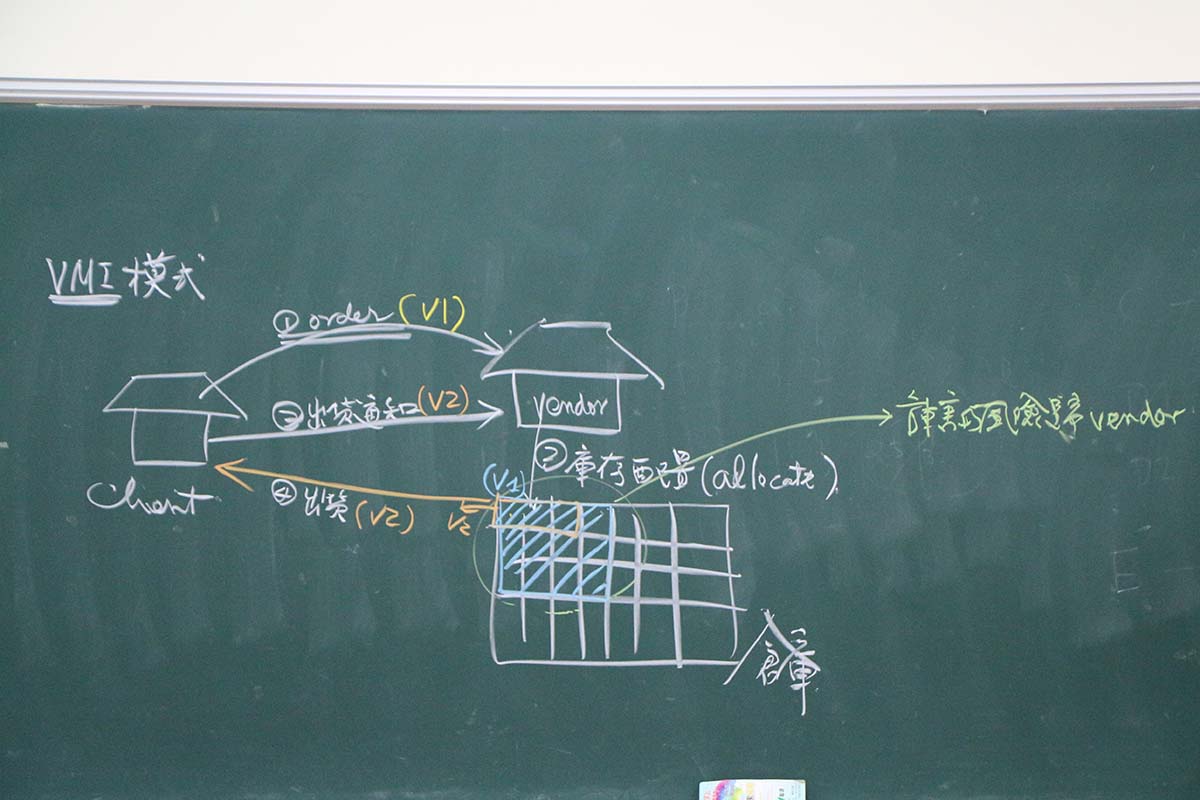 VMI 模式
① order (V1)
vendor
③ 出貨通知 (V2)
Client
② 庫存配置 (allocate)
(V1)
④ 出貨 (V2)
V2
的風險歸 vendor
倉庫